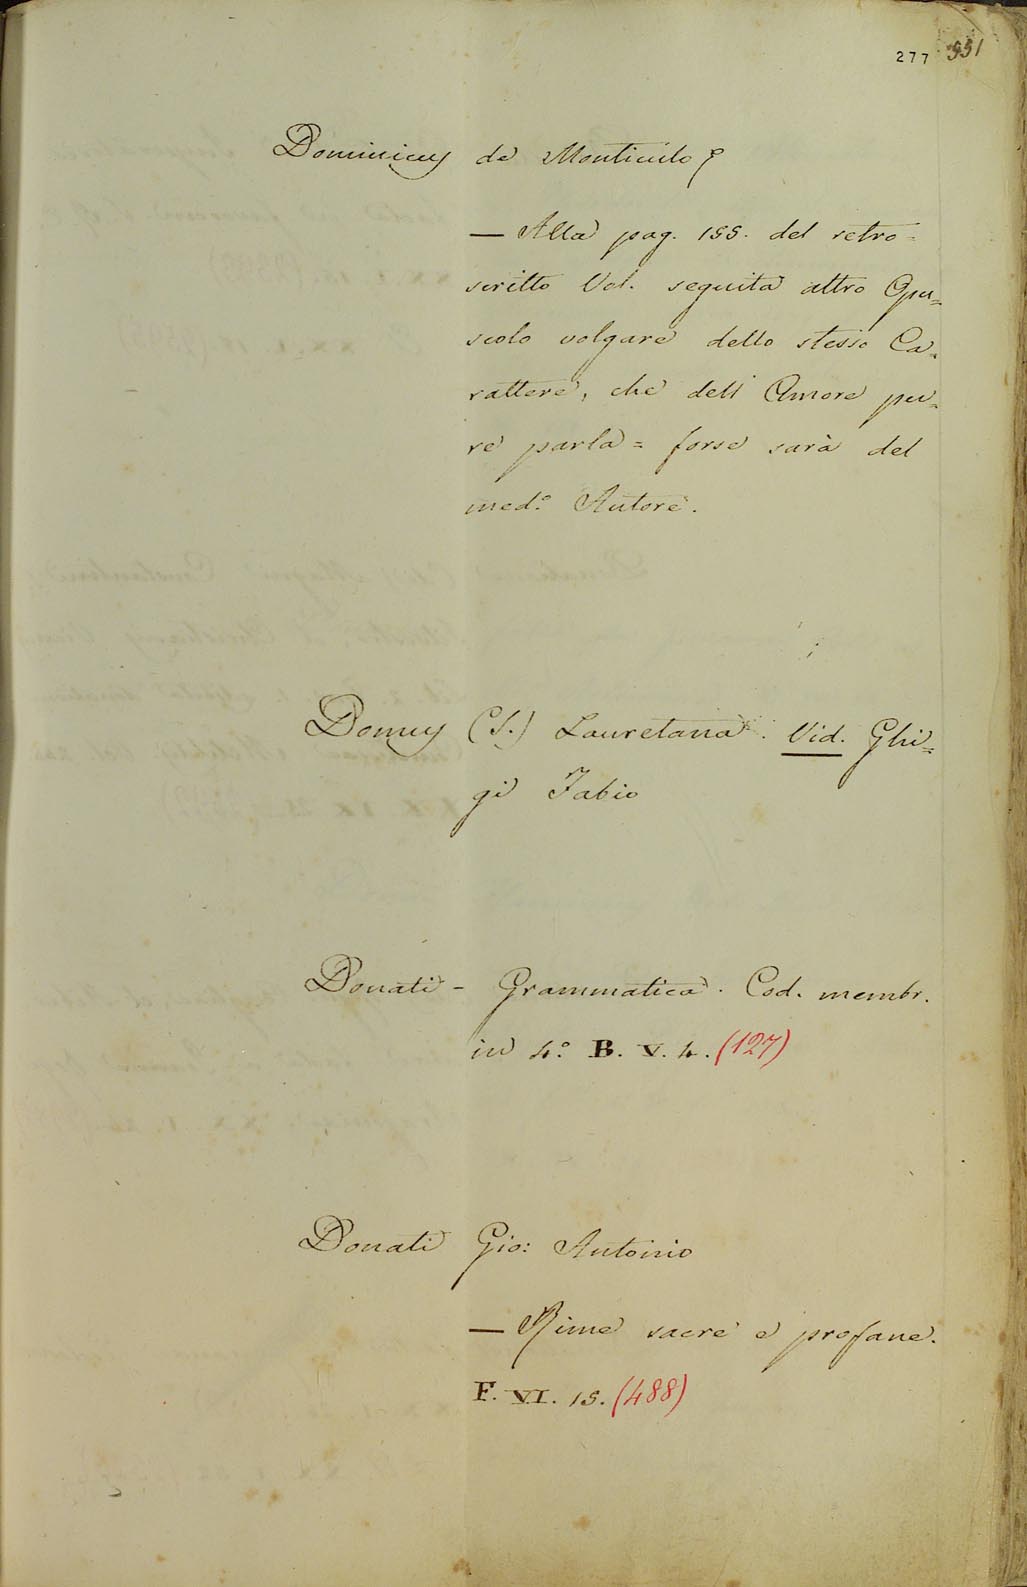 277 551
Dominicus de Monticulo
— Alla pag. 155. del retro=
scritto Vol. seguita altro Opu=
scolo volgare dello stesso Ca=
rattere, che dell'Amore pu=
re parla = forse sarà del
med.º Autore.
Domus (S.) Lauretana. Vid. Ghi=
gi Fabio
Donati - Grammatica. Cod. membr.
in 4.º B. V. 4. (127)
Donati Gio: Antonio
— Rime sacre e profane.
F. VI. 15. (488)